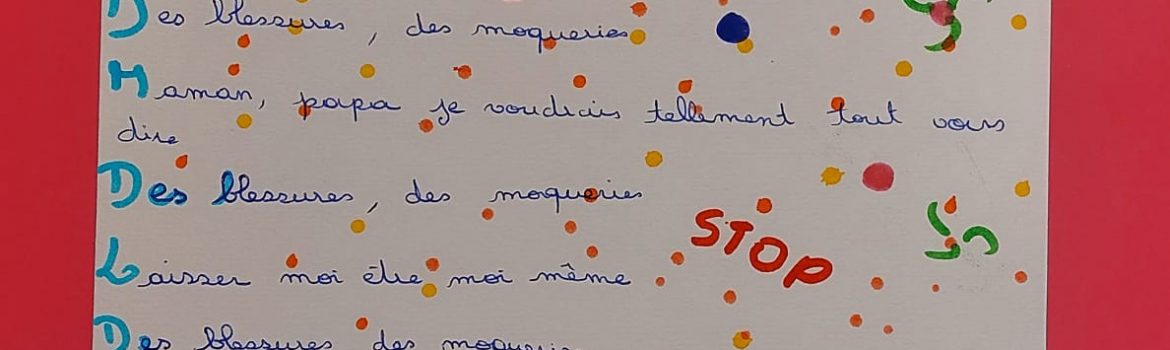 Des blessures, des moqueries
Maman, papa je voudrais tellement tout vous
dire
Des blessures, des moqueries
STOP
Laisser moi être moi même
Des blessures des moqueries